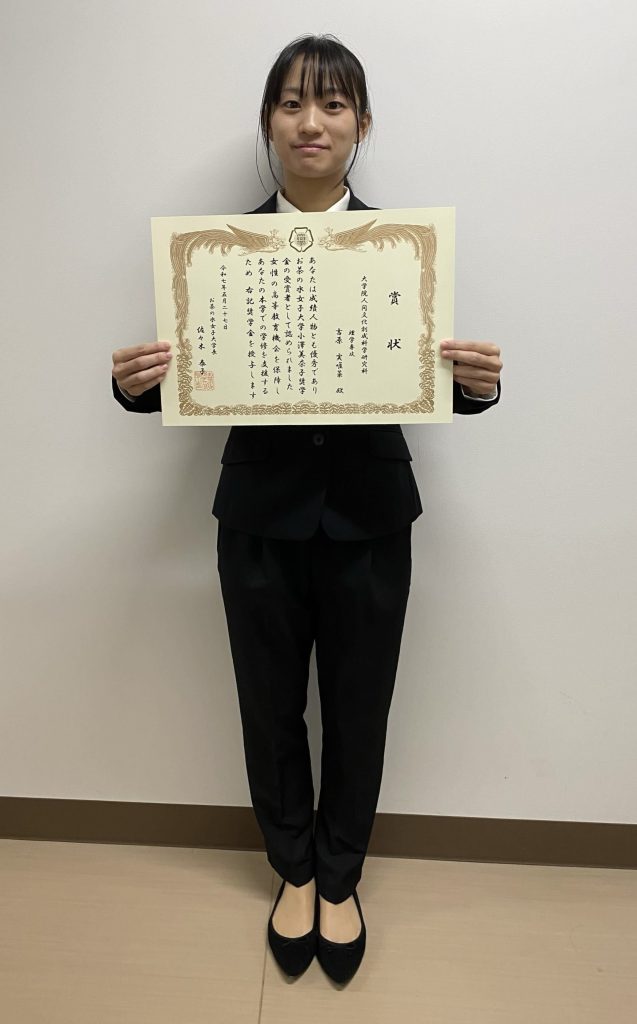 賞状
大学院人間文化創成科学研究科
理学専攻
吉原 実唯菜 殿
あなたは成績人物とも優秀であり
お茶の水女子大学小澤美奈子奨学
金の受賞者として認められました
女性の高等教育機会を保障し
あなたの本学での学修を支援する
ため 右記奨学金を授与します
令和七年五月二十七日
お茶の水女子大学長
佐々木 泰子